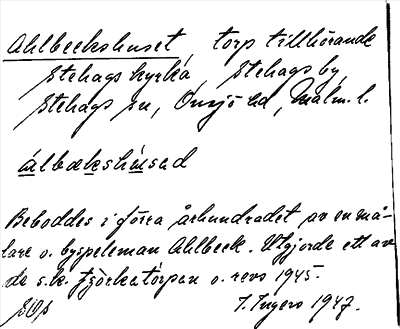 Ahlbeckshuset, torp tillhörande
Stehags kyrka, Stehags by,
Stehags sn, Onsjö hd, Malm. l.
álbækshúsəd
Beboddes i förra århundradet av en må-
lare o. byspeleman Ahlbeck. Utgjorde ett av
de s.k. tjörkatórpan o. revs 1945.
I. Ingers 1947.